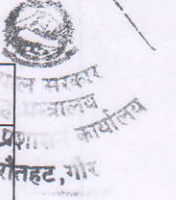 पाल सरकार
मन्त्रालय
प्रशासन कार्यालय
रौतहट,गौर